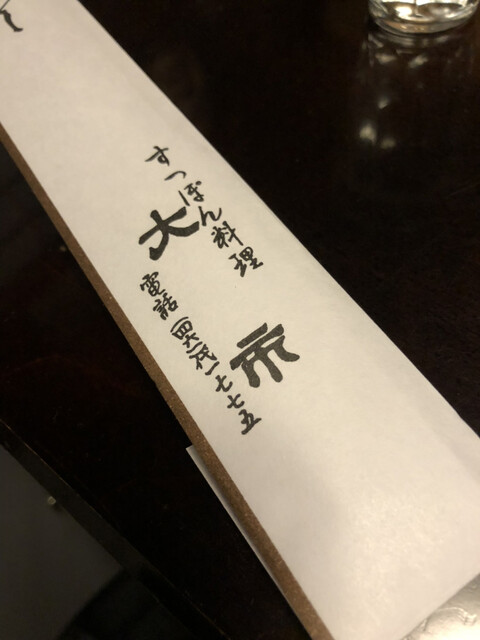 すっぽん料理
大市
電話四六一代一七七五